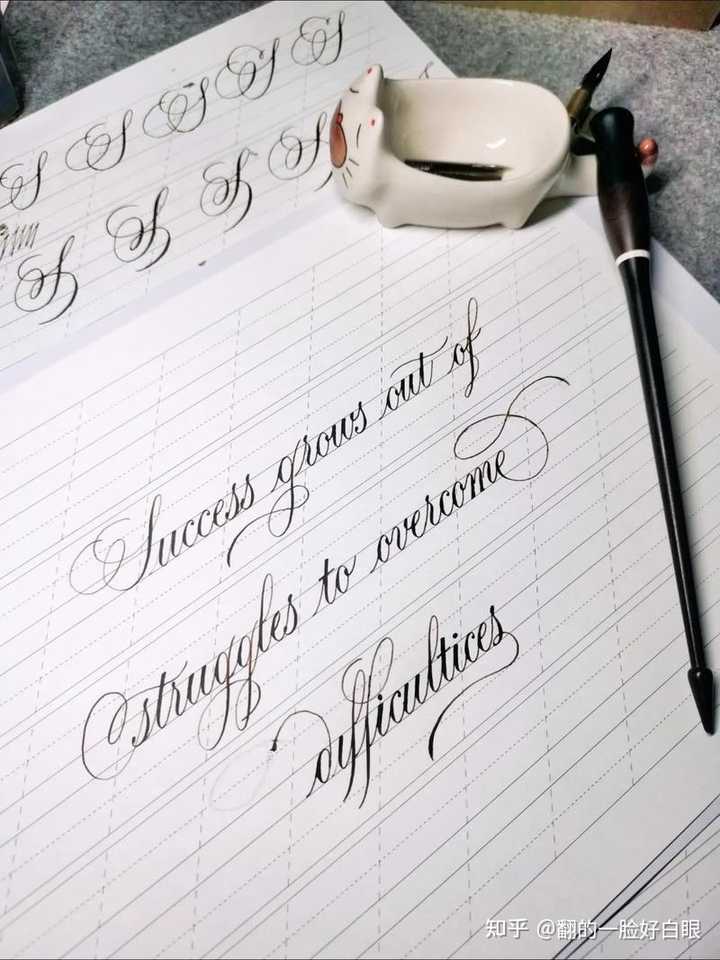 S S S S S
S S S S S
Success grows out of
struggles to overcome
difficultices
知乎 @翻的一脸好白眼